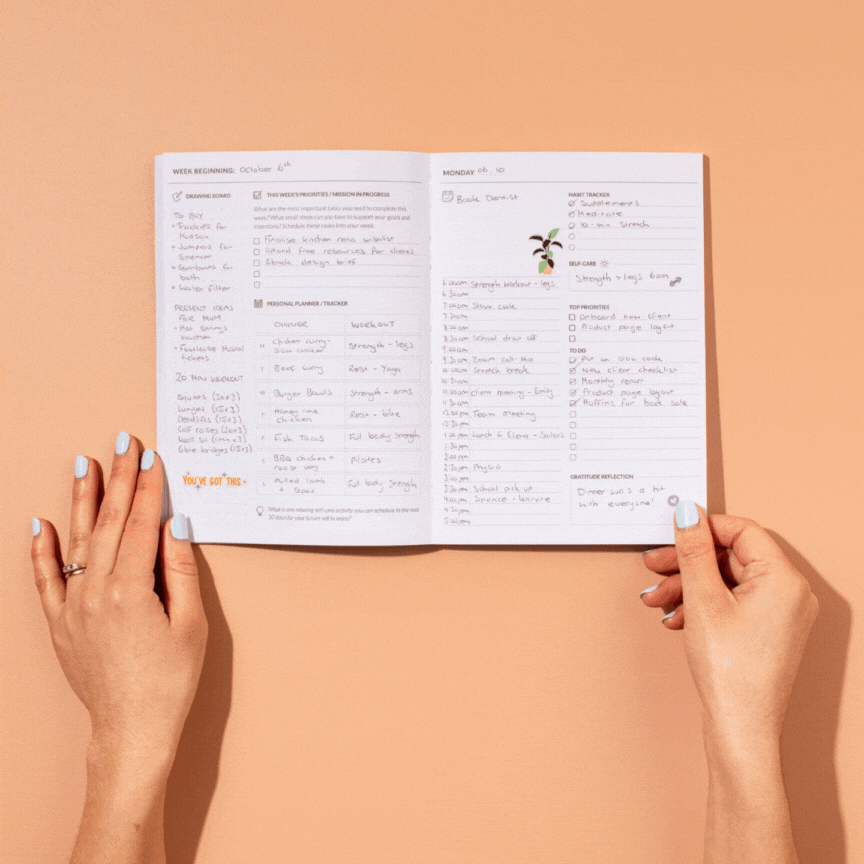 WEEK BEGINNING: October 6th
DRAWING BOARD
TO BUY
• Trackies for
Hudson
• Jumpers for
Spencer
• Gumboots for
both
• Water filter
PRESENT IDEAS
FOR MUM
• Hot springs
voucher
• Footloose Musical
tickets
20 MIN WORKOUT
Squats (20x3)
Lunges (15x3)
Deadlifts (15x3)
Calf raises (20x3)
Wall sit (1min x3)
Glute bridges (15x3)
YOU'VE GOT THIS
THIS WEEK'S PRIORITIES / MISSION IN PROGRESS
What are the most important tasks you need to complete this
week? What small steps can you take to support your goals and
intentions? Schedule these tasks into your week.
Finalise kitchen reno
Upload free resources for clients
Ebook design brief
PERSONAL PLANNER / TRACKER
DINNER WORKOUT
Chicken curry - slow cooker Strength - legs
Beef curry Rest - Yoga
Burger Bowls Strength - arms
Honey lime chicken Rest - bike
Fish Tacos Full body strength
BBQ chicken + roast veg Pilates
Pulled lamb + slaw Full body strength
What is one relaxing self-care activity you can schedule in the next
30 days for your future self to enjoy?
MONDAY 06.10
Book Dentist
6.00am Strength workout - legs
6.30am
7.00am Slow cook
7.30am
8.00am
8.30am School drop off
9.00am
9.30am Zoom call-
10.00am Stretch break
10.30am
11.00am Client meeting - Emily
11.30am
12.00pm Team meeting
12.30pm
1.00pm Lunch @
1.30pm
2.00pm
2.30pm Physio
3.00pm
3.30pm School pick up
4.00pm Spence - karate
4.30pm
5.00pm
HABIT TRACKER
Supplements
Meditate
10-min Stretch
SELF-CARE
Strength > legs 6am
TOP PRIORITIES
Onboard new client
Product page layout
TO DO
Put on slow cook
New client checklist
Monthly report
Product page layout
Muffins for bake sale
GRATITUDE REFLECTION
Dinner was a hit
with everyone!